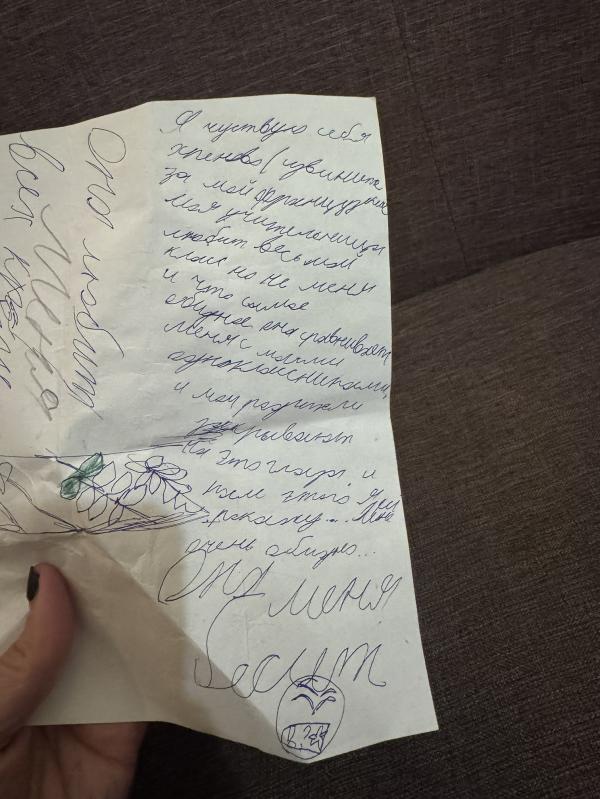 Я чуствую себя
хреново (извините
за мой французкий
моя учительница
любит весь мой
класс но не меня
и что самое
обидное она сравнивает
меня с моими
одноклассниками,
и мои родители
закрывают
на это глаза, и
после этого я им
.... Мне
очень обидно...
Она меня
бесит
Она любит
всех кроме
Меня